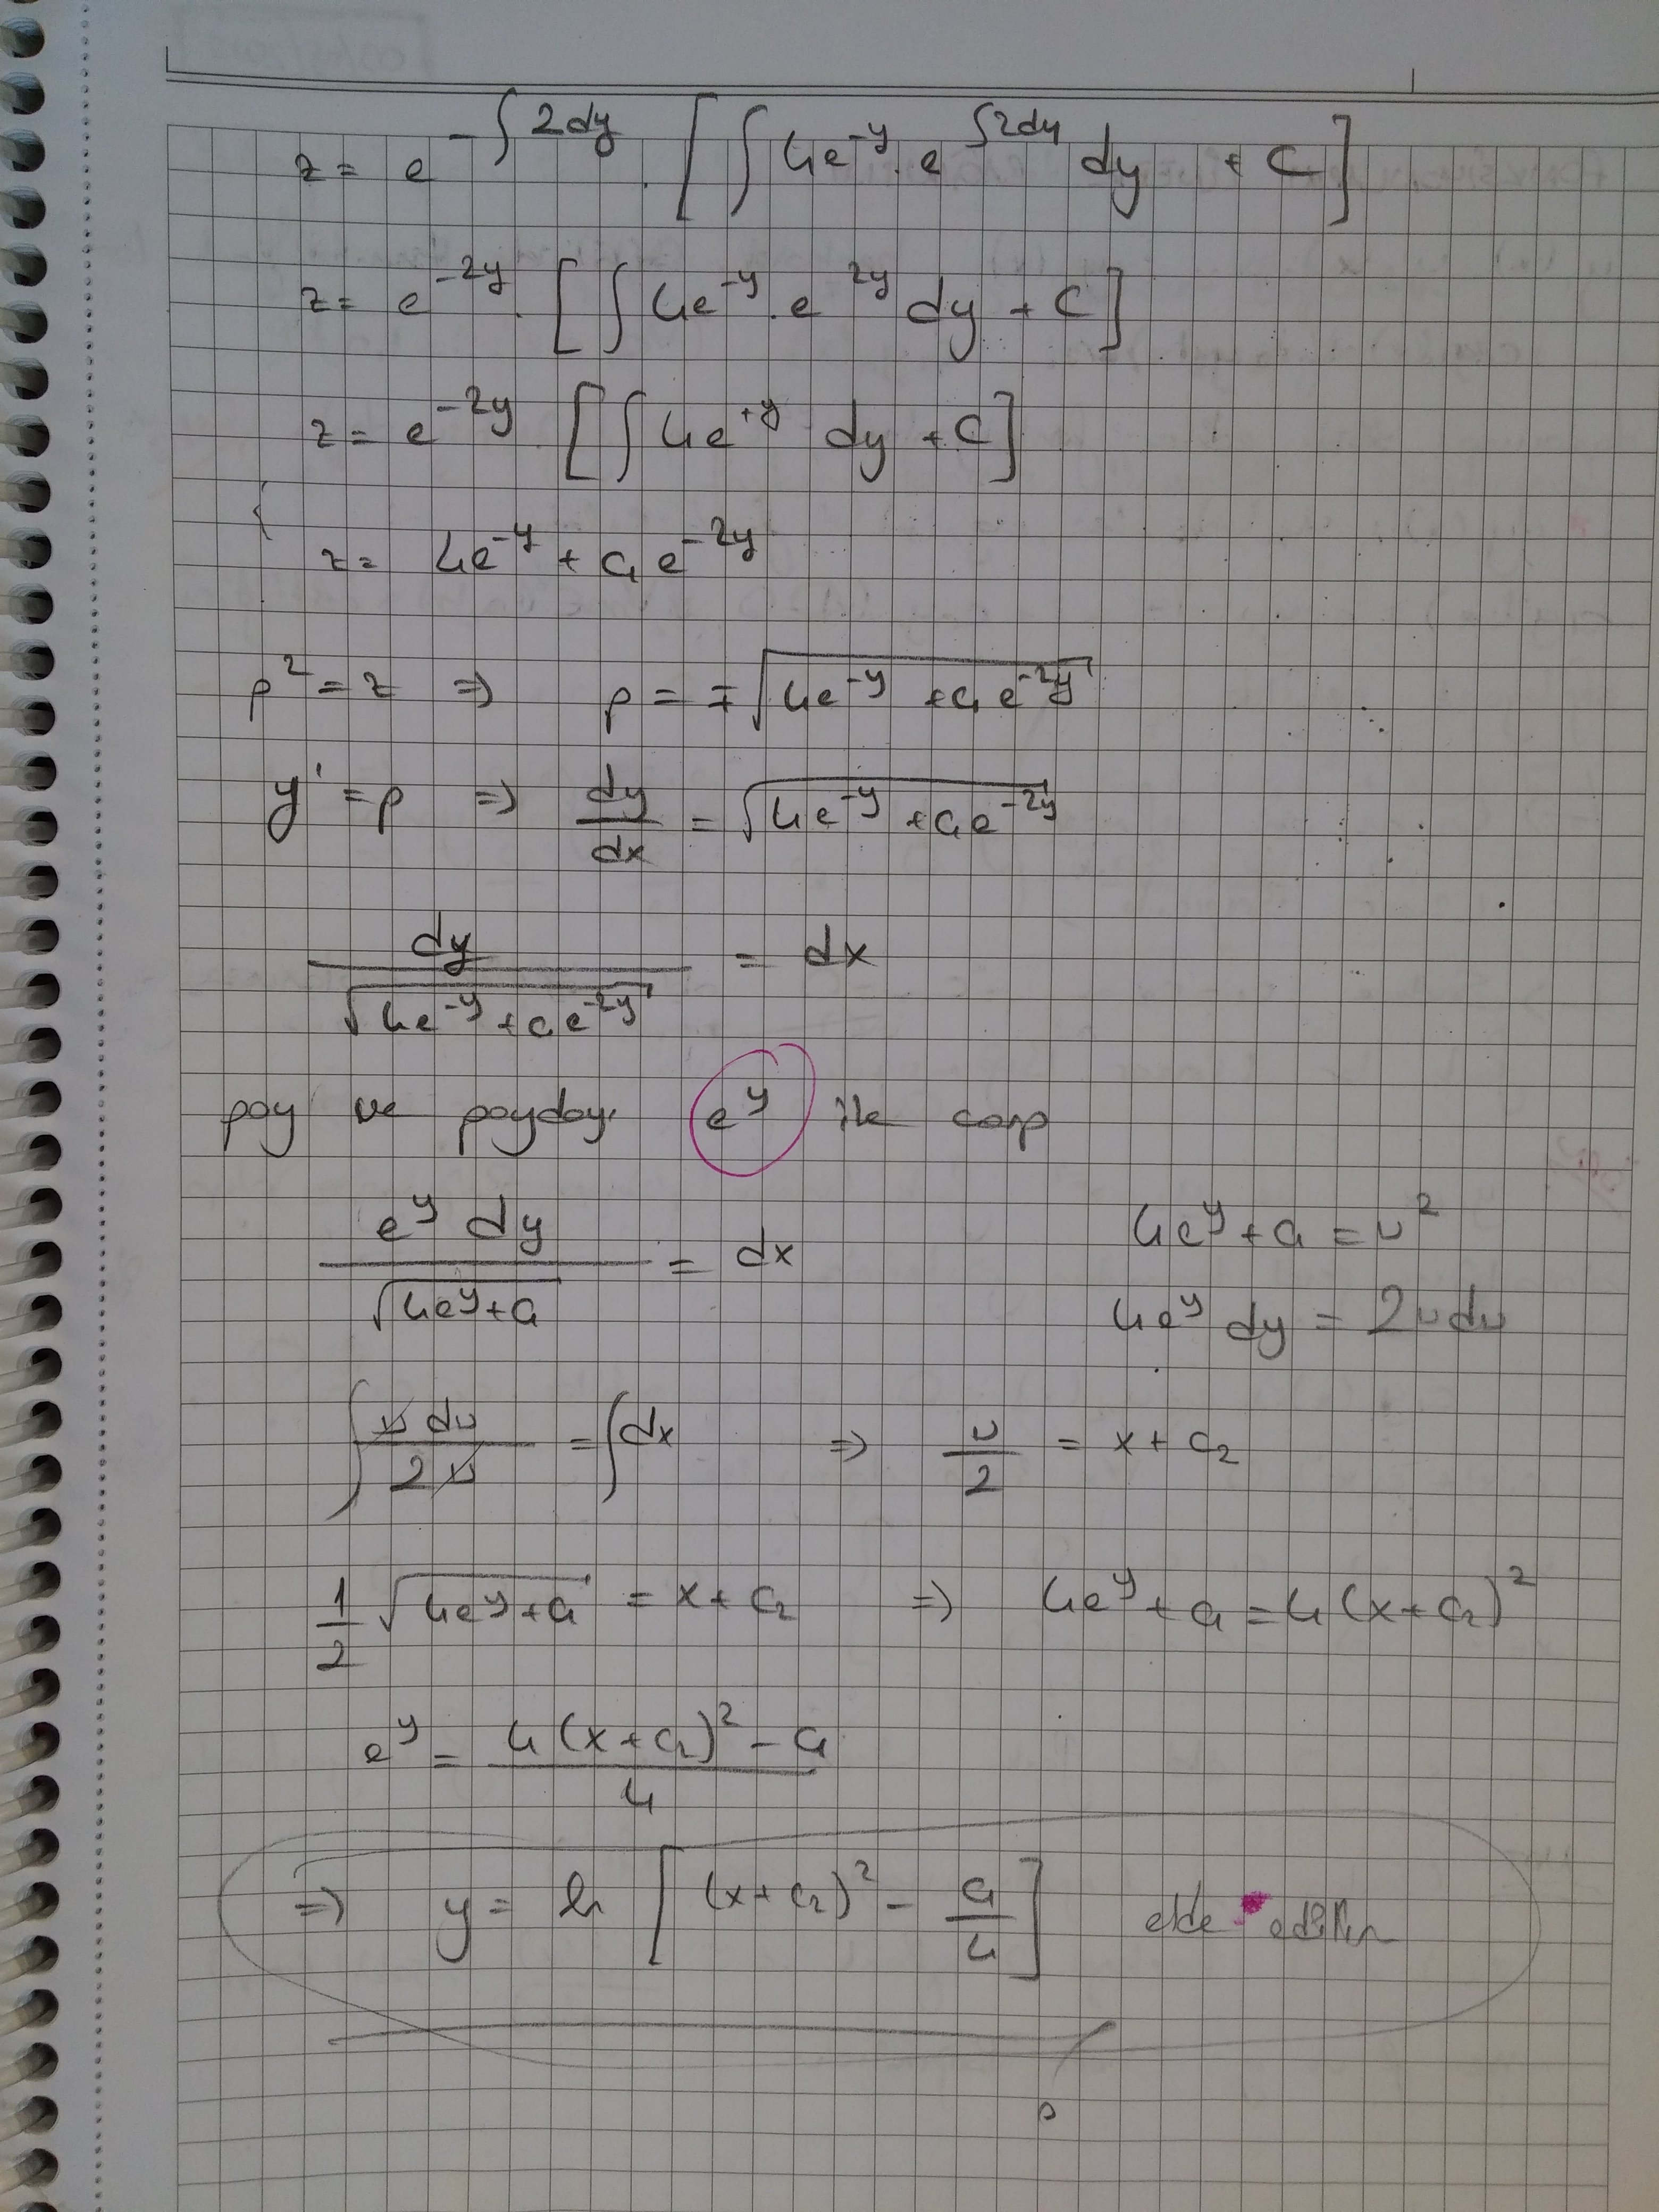 z = e^{-∫2dy} . [ ∫ 4e^{-y} . e^{∫2dy} dy + C ]
z = e^{-2y} . [ ∫ 4e^{-y} . e^{2y} dy + C ]
z = e^{-2y} . [ ∫ 4e^{+y} dy + C ]
z = 4e^{-y} + c₁e^{-2y}
p² = z ⇒ p = ∓√(4e^{-y} + c₁e^{-2y})
y' = p ⇒ dy/dx = √(4e^{-y} + c₁e^{-2y})
dy/√(4e^{-y} + c₁e^{-2y}) = dx
pay ve payday. e^y ile çarp
e^y dy/√(4e^y + c₁) = dx
4e^y + c₁ = u²
4e^y dy = 2u du
∫ u du/2u = ∫dx ⇒ u/2 = x + c₂
1/2 √(4e^y + c₁) = x + c₂ ⇒ 4e^y + c₁ = 4(x + c₂)²
e^y = (4(x + c₂)² - c₁)/4
⇒ y = ln [ (x + c₂)² - c₁/4 ] elde edilir